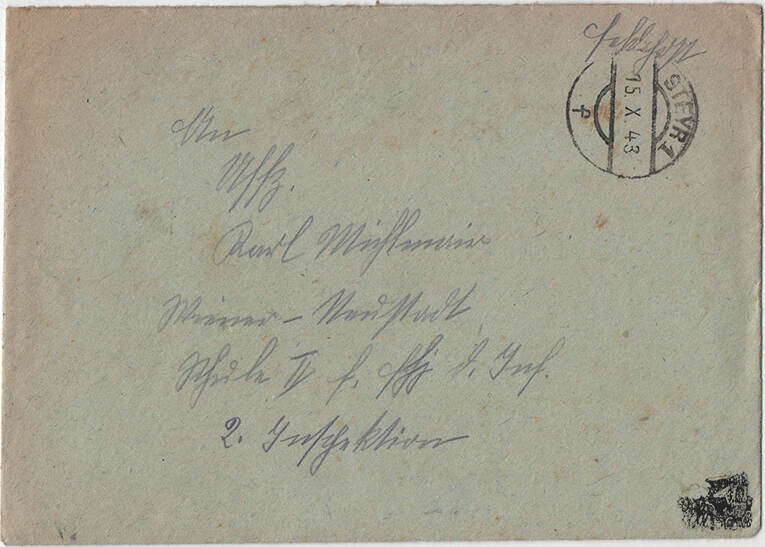 Feldpost
STEYR 1
15. X. 43
An
Uffz.
Karl Mühlmair
Wiener-Neustadt
Schule V f. Fhj. d. Inf.
2. Inspektion